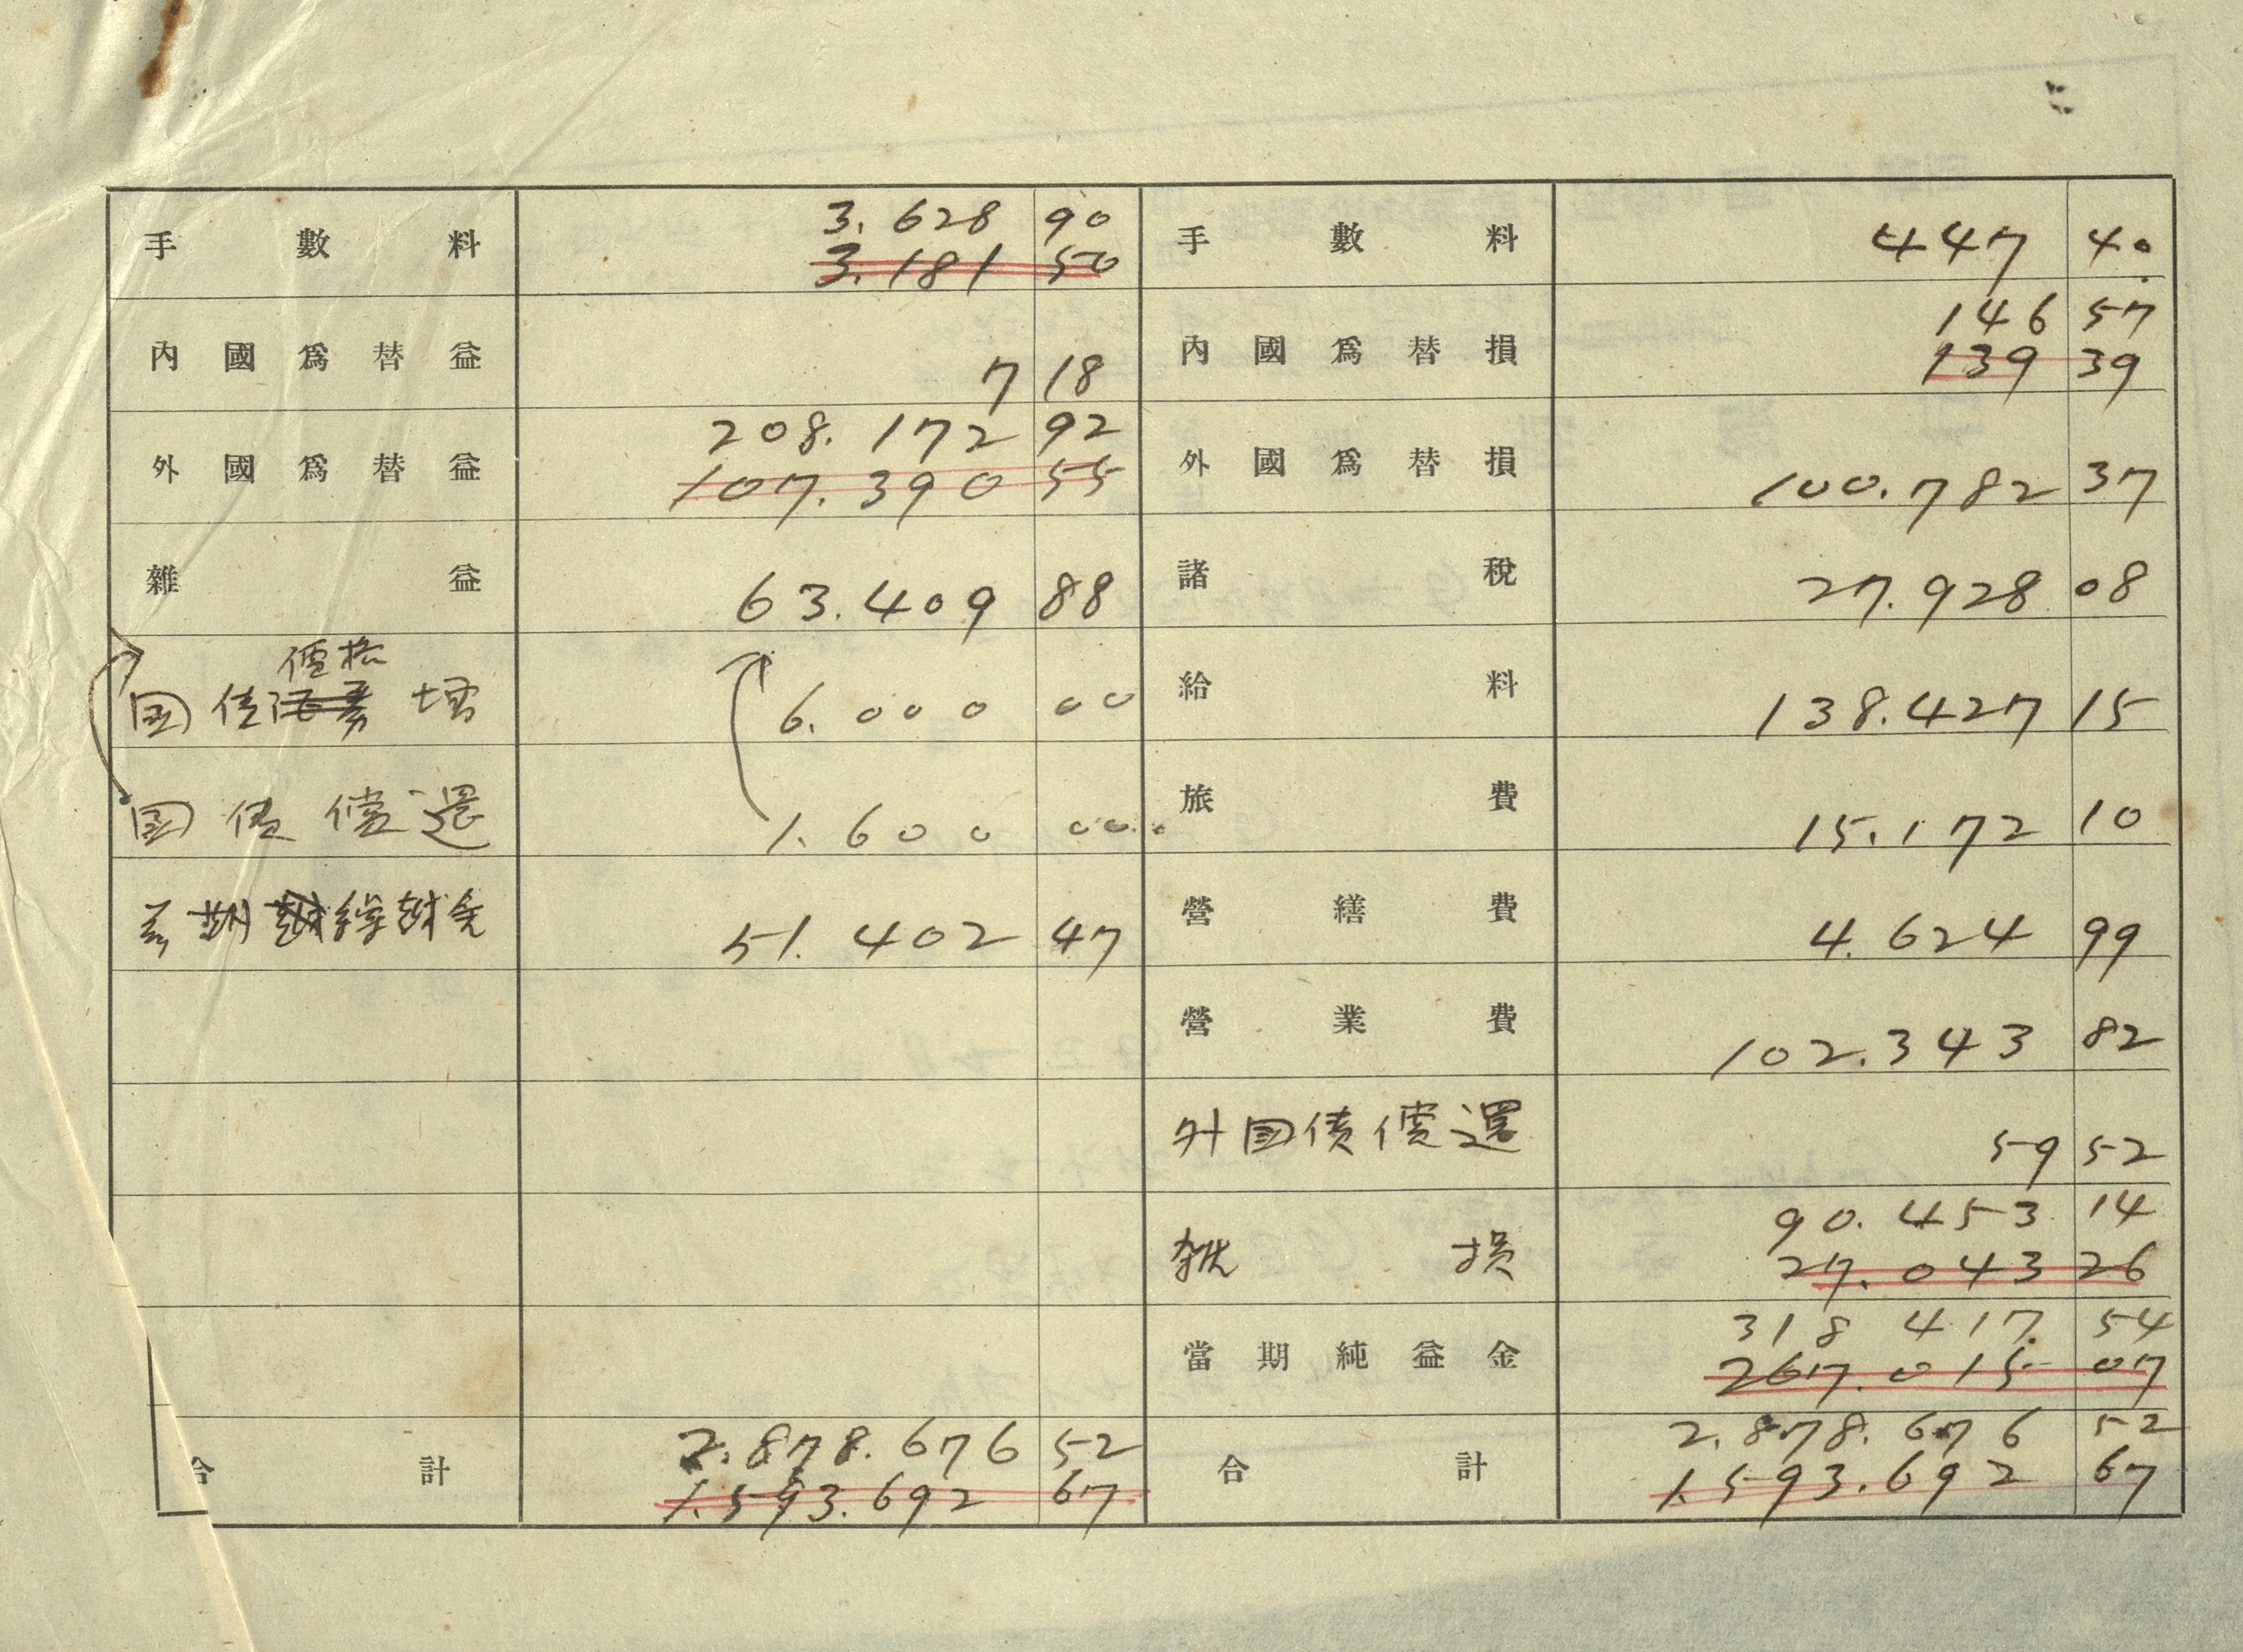 手數料 3.628 90 手數料 447 40
3.181 50
內國爲替益 7 18 內國爲替損 146 57
139 39
外國爲替益 208.172 92 外國爲替損 100.782 37
107.390 55
雜益 63.409 88 諸稅 27.928 08
價格
国债 增 6.000 00 給料 138.427 15
国债償還 1.600 00 旅費 15.172 10
前期繰越金 51.402 47 營繕費 4.624 99
營業費 102.343 82
外国債償還 59 52
雑損 90.453 14
27.043 26
當期純益金 318 417. 54
267.015 07
合計 2.878.676 52 合計 2.878.676 52
1.593.692 67 1.593.692 67